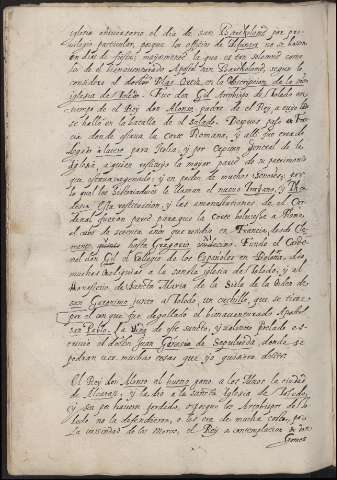 iglesia aniversario el dia de san Bartholomé por pre
uilegio particular, porque los officios de difuntos no se hacen
en dias de fiestas, mayormente la que es tan solemne como
la de el bienauenturado Apostol san Bartholomé, segun lo
considero el doctor Blas Ortiz en la descripcion de la sancta
iglesia de Toledo. Fue don Gil Arçobispo de Toledo en
tiempo de el Rey don Alonso padre de el Rey
se halló en la batalla de el Salado. Despues passó en Fran
cia donde estaua la Corte Romana, y allí fue criado
legado à latere para Italia, y por Capitan General de la
iglesia, a quien restituyó la mayor parte de su patrimonio
que estaua enagenado, y en poder de muchos señores, por
lo qual los historiadores le llaman el nueuo
Esta restitucion, y las amonestaciones de el Car
denal fueron parte para que la Corte boluiesse a Roma,
al cabo de setenta años que residio en Francia, desde Cle
mente quinto hasta Gregorio undecimo. Fundo el Carde
nal don Gil el Collegio de los Españoles en Boloña, dio
muchas reliquias a la sancta iglesia de Toledo, y al
Monesterio de Sancta Maria de la Sisla de la Orden de
san Geronimo junto a Toledo, un cuchillo, que se tiene
por el con que fue degollado el bienauenturado Apostol
san Pablo. La vida de este sancto, y valeroso prelado es
criuio el doctor Juan Ginesio de Sepulueda, donde se
podran ver muchas cosas que yo quisiera dezir.
El Rey don Alonso el bueno gano a los Moros la ciudad
de Alcaraz, y la dio a la sancta Iglesia de Toledo,
y se por hauerse perdido, o porque los Arçobispos de To
ledo no la defendieron, o les era de mucha costa, por
la vezindad de los Moros, el Rey a contemplacion de don